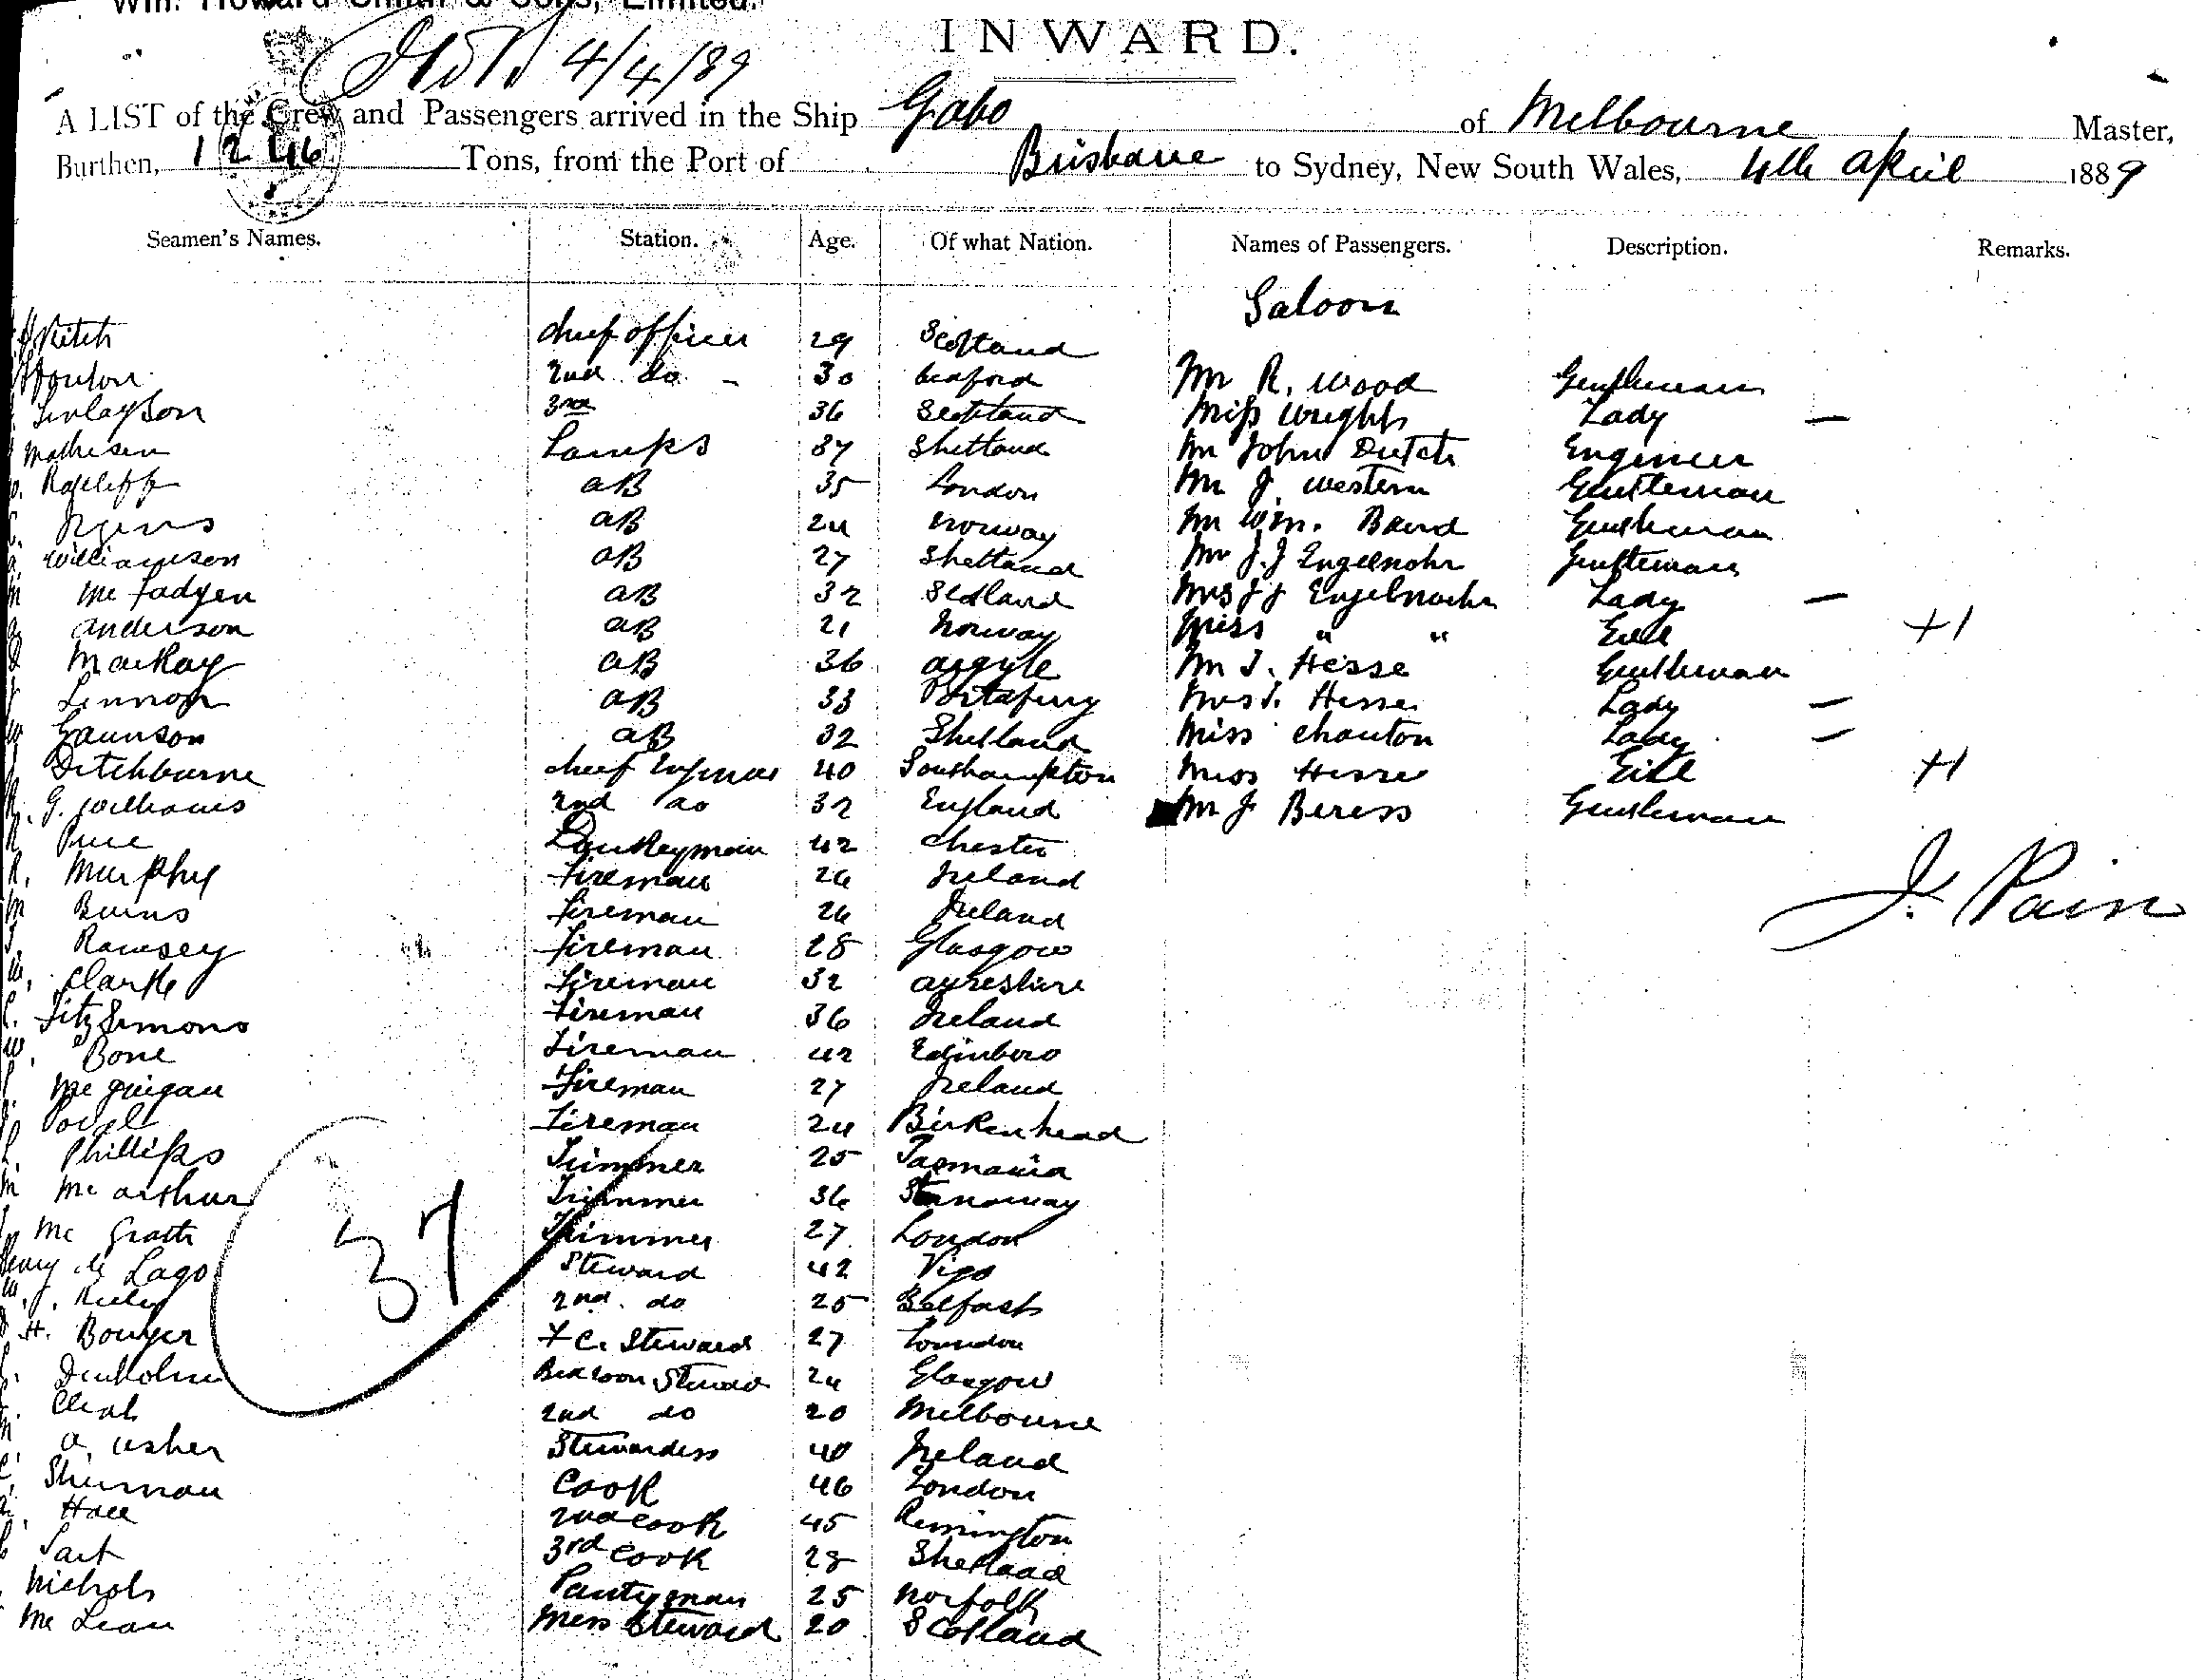 Wm. Howard Smith & Sons, Limited.
INWARD.
4/4/89
A LIST of the Crew and Passengers arrived in the Ship Gabo of Melbourne Master,
Burthen, 1246 Tons, from the Port of Brisbane to Sydney, New South Wales, 4th April 1889
Seamen's Names. Station. Age. Of what Nation. Names of Passengers. Description. Remarks.
Saloon
chief officer 29 Scotland
2nd do - 30 Mr R. Wood Gentleman
Finlayson 3rd 36 Scotland Miss Wright Lady —
Mathisen Lamps 37 Shetland Mr John Dutch Engineer
Radcliffe AB 35 London Mr J. Western Gentleman
AB 24 Norway Mr Wm. Baird Gentleman
Williamson AB 27 Shetland Mr J.J Engelnohr Gentleman
Mc Fadyen AB 32 Scotland Mrs J J Lady —
Anderson AB 21 Norway Miss " " +1
MacKay AB 36 Argyle Mr J. Hesse Gentleman
Lennox AB 33 Mrs J. Hesse Lady —
Gaunson AB 32 Shetland Miss Chanton Lady —
Ditchburne chief Engineer 40 Southampton Miss Hesse +1
R. G. Williams 2nd do 32 England Mr J Beress Gentleman
R Donkeyman 42 Chester
R. Murphy Fireman 26 Ireland
J. Pain
M Burns Fireman 26 Ireland
Ramsey Fireman 28 Glasgow
W. Clarke Fireman 32 Ayreshire
Fitz Simons Fireman 36 Ireland
W. Bone Fireman 42 Edinboro
Mc Guigan Fireman 27 Ireland
Fireman 24 Birkenhead
Phillips Trimmer 25 Tasmania
M Mc Arthur Trimmer 36 Stornoway
Mc Grath Trimmer 27 London
Henry de Lago Steward 42 Vigo
37
2nd do 25 Belfast
H. Bowyer F C. Steward 27 London
Denholm Bedroom Steward 24 Glasgow
2nd do 20 Melbourne
A. Usher Stewardess 40 Ireland
Shurman Cook 46 London
Hall 2nd Cook 45 Remington
3rd Cook 28 Shetland
Nichols Pantryman 25 Norfolk
Mc Lean Mess Steward 20 Scotland